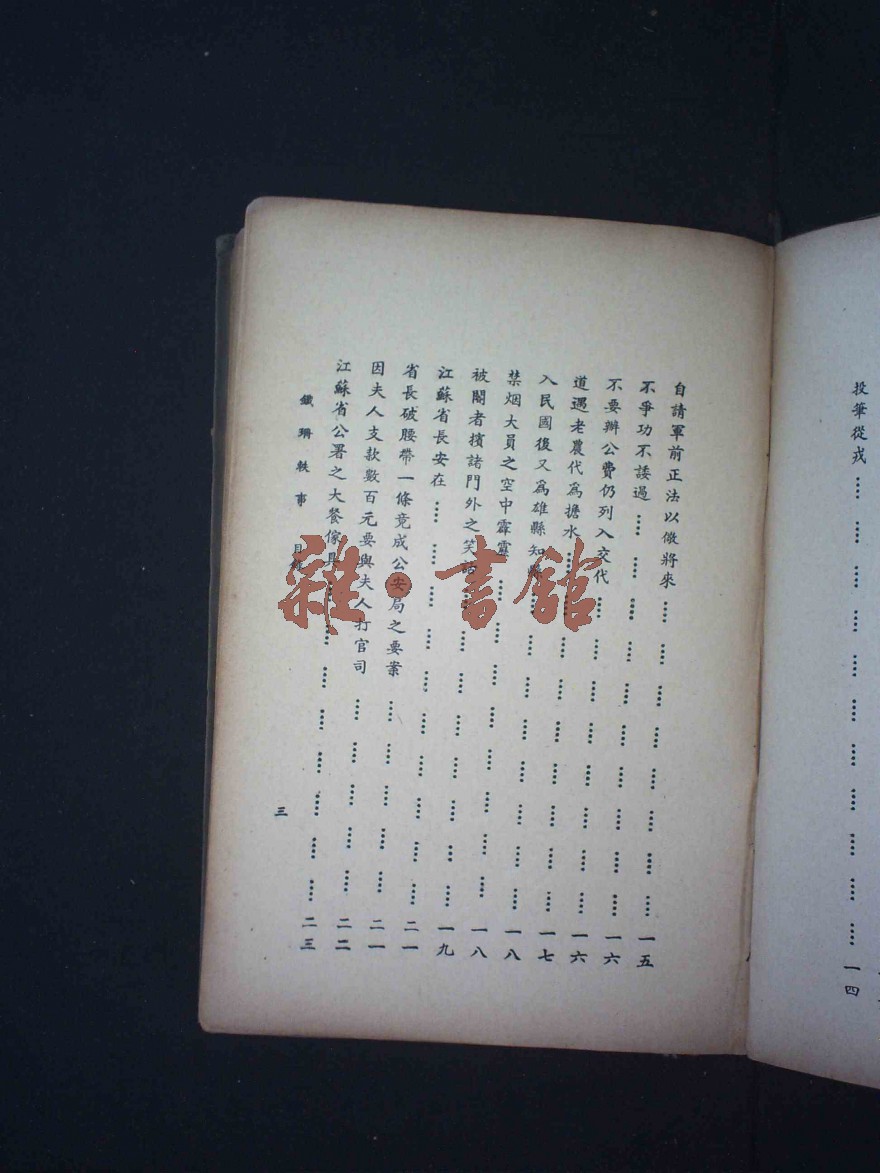 投筆從戎 …… 一四
自請軍前正法以儆將來 …… 一五
不爭功不諉過 …… 一六
不要辦公費仍列入交代 …… 一六
道遇老農代為擔水 …… 一七
入民國後又為雄縣知縣 …… 一八
禁烟大員之空中霹靂 …… 一八
被閽者擯諸門外之笑話 …… 一九
江蘇省長安在 …… 二一
省長破腰帶一條竟成公安局之要案 …… 二一
因夫人支款數百元要與夫人打官司 …… 二二
江蘇省公署之大餐傢具 …… 二三
鐵珊軼事 目錄 三
雜·書館